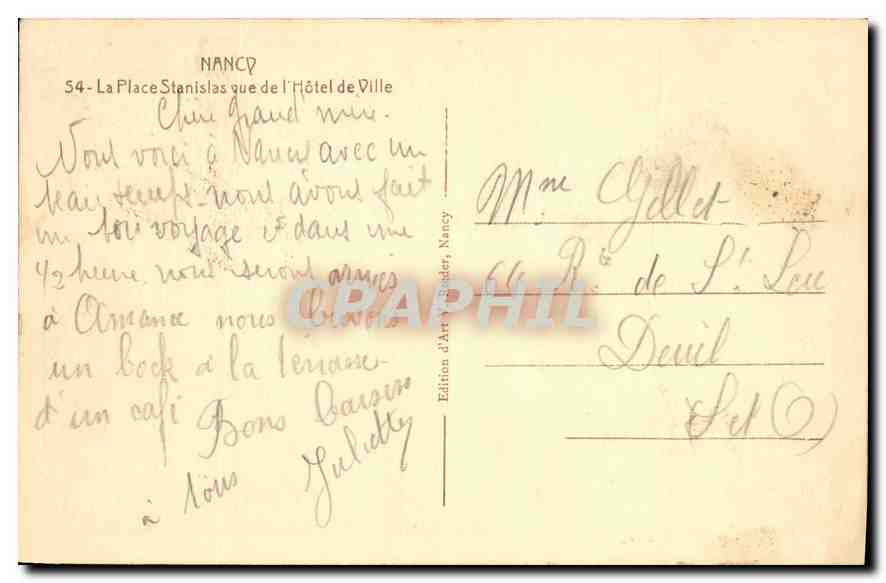 NANCY
54 - La Place Stanislas vue de l'Hôtel de Ville
Chère Grand' mère.
Nous voici à Nancy avec un
beau temps - nous avons fait
un bon voyage et dans une
1/2 heure nous serons arrivés
à Amance nous buvons
un bock à la terrasse
d'un café Bons baisers
à tous Juliette
Edition d'Art V. Reeder, Nancy
Mme Gellet
66 Rte de St. Leu
Deuil
S et O
CPAPHIL